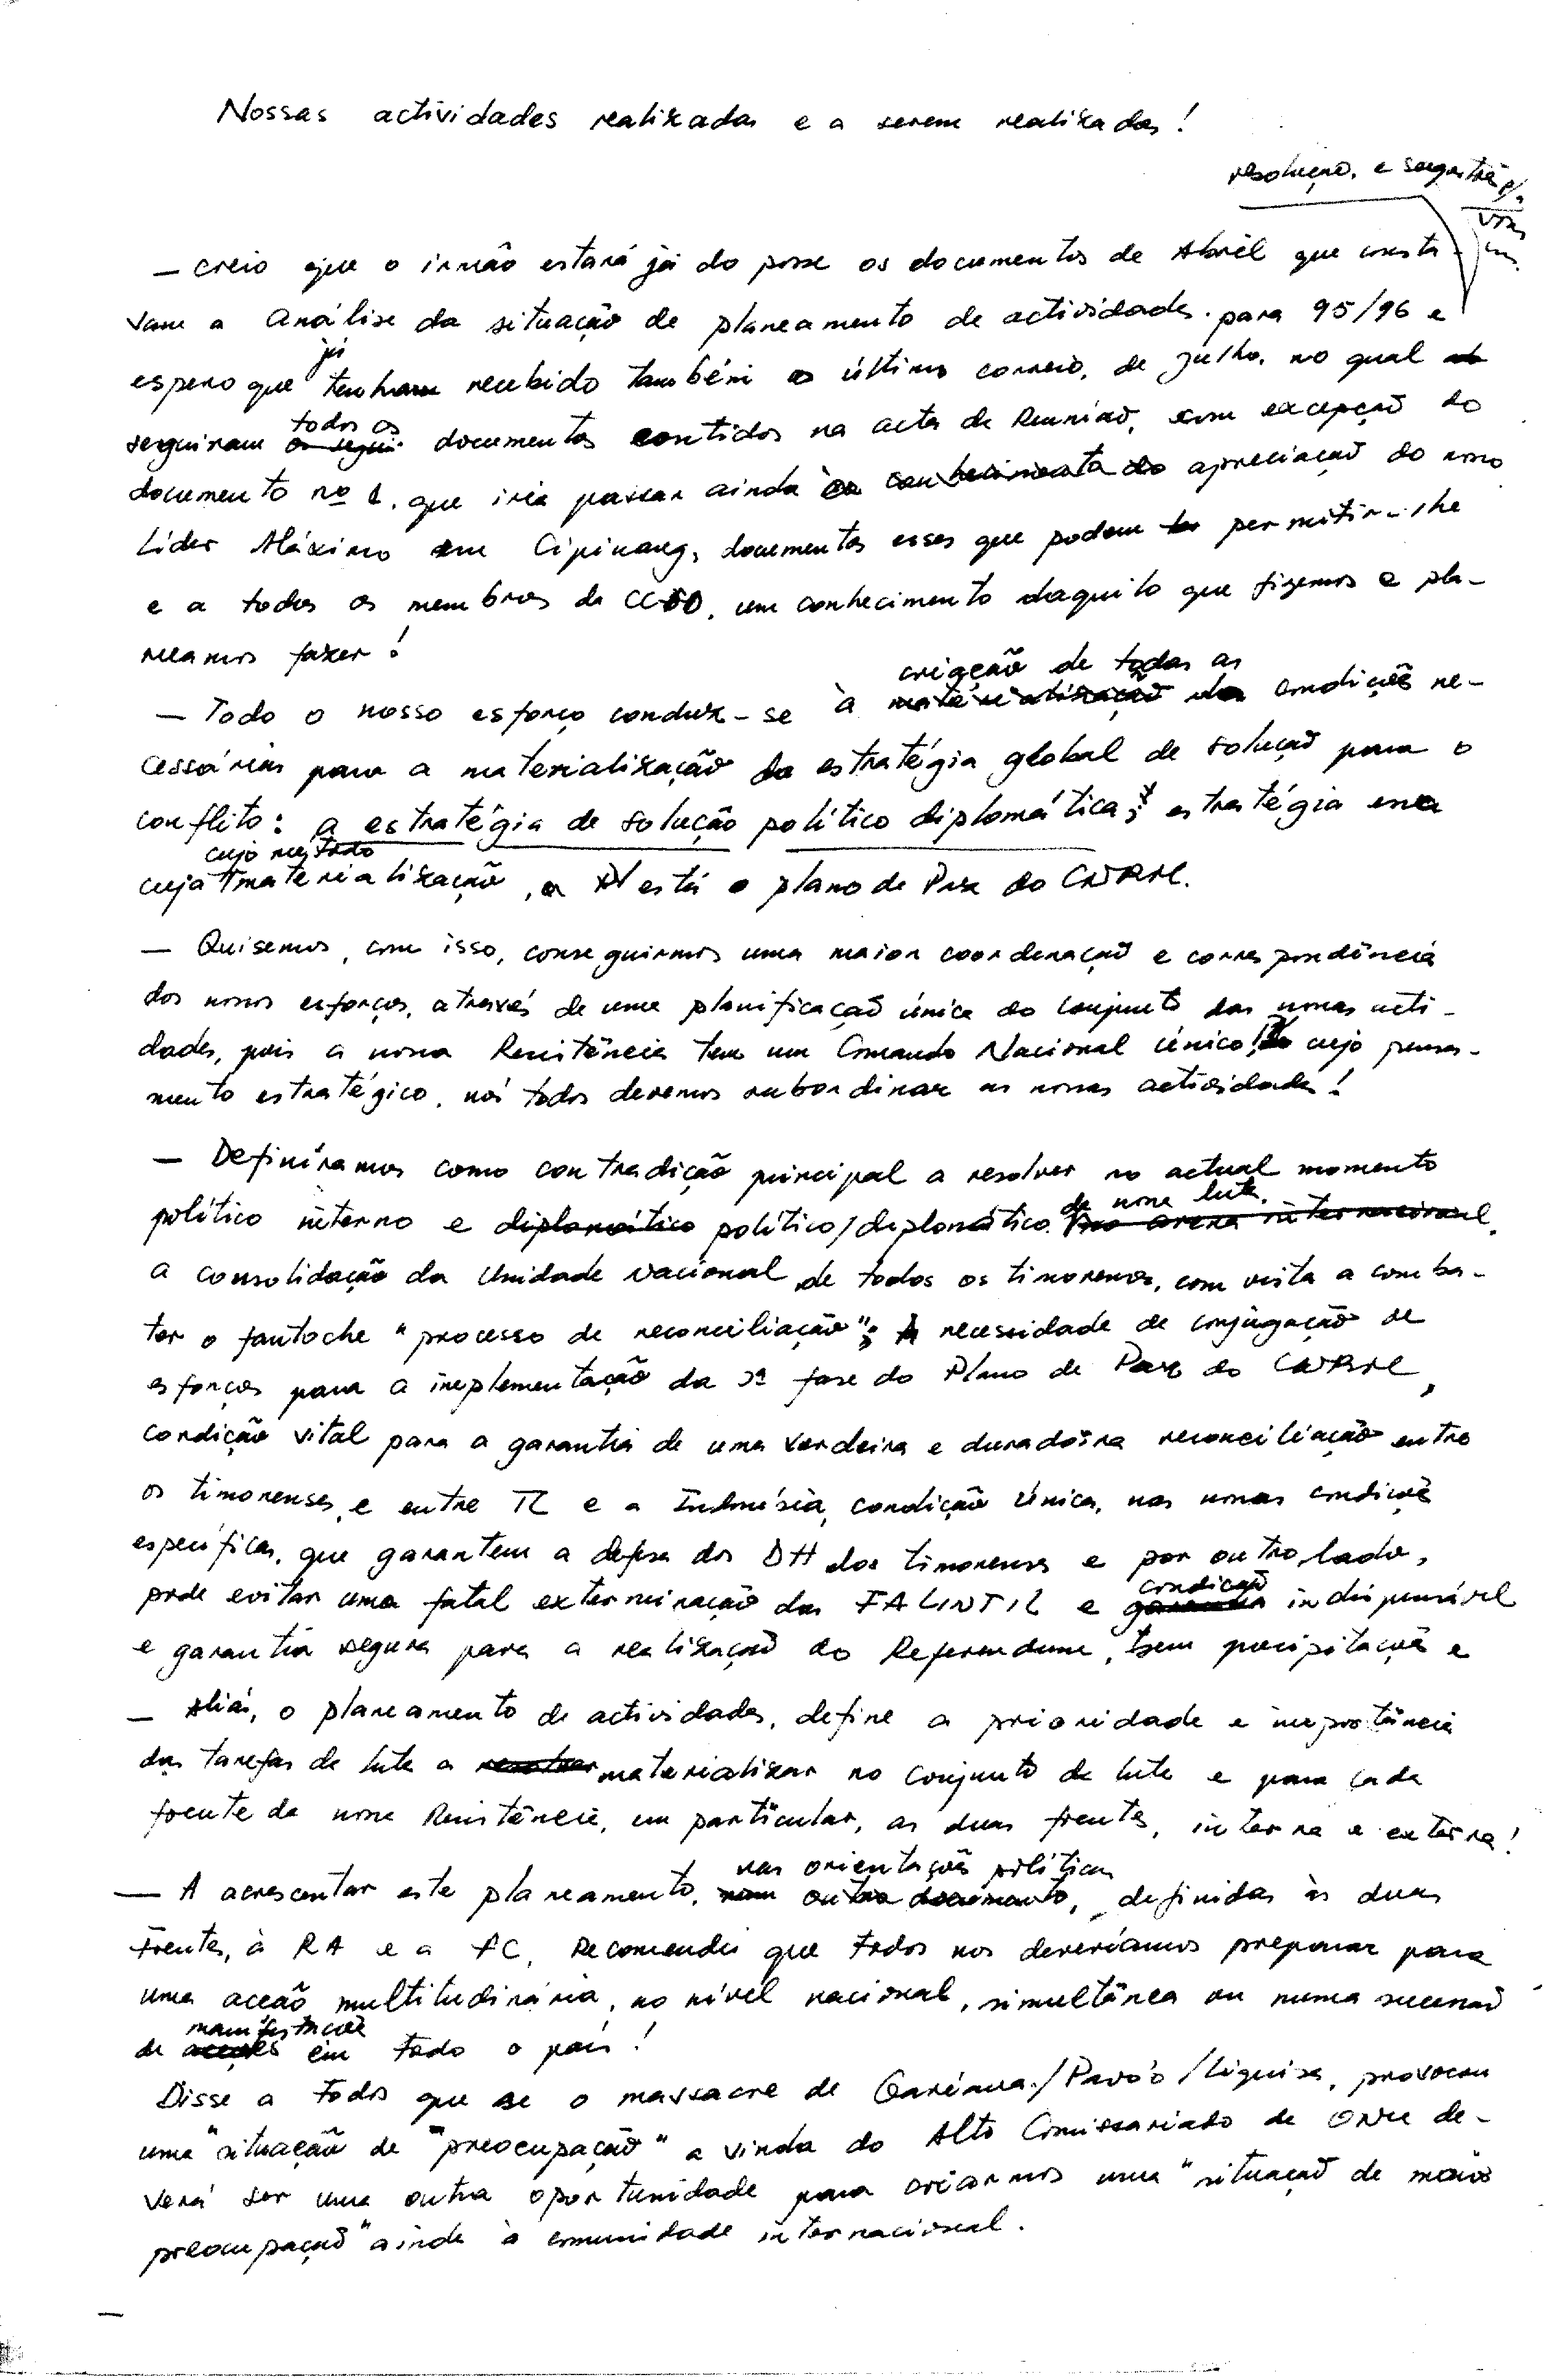 Nossas actividades realizadas e a serem realizadas!
resolução, e sugestão p/a
— Creio que o irmão estará já do posse os documentos de Abril que consta-
vam a Análise da situação de planeamento de actividades para 95/96 e
já
espero que tenham recebido também o último correio, de Julho, no qual
todos os
seguiram documentos contidos na acta de Reunião, com excepção do
documento nº 1, que iria passar ainda à apreciação do nosso
Líder Máximo em Cipinang, documentos esses que podem permitir-lhe
e a todos os membros da CC, um conhecimento daquilo que fizemos e pla-
neamos fazer!
criação de todas as
— Todo o nosso esforço conduz-se à condições ne-
cessárias para a materialização da estratégia global de solução para o
conflito: a estratégia de solução político diplomática; estratégia essa
cujo
cuja materialização, está o plano de Paz do CNRM.
— Quisemos, com isso, conseguirmos uma maior coordenação e correspondência
dos nossos esforços, através de uma planificação única do conjunto das nossas acti-
dades, pois a nossa Resistência tem um Comando Nacional único! cujo pensa-
mento estratégico, nós todos devemos subordinar as nossas actividades!
— Definíramos como contradição principal a resolver no actual momento
da nossa luta,
político interno e diplomático político/diplomático no arena internacional,
a consolidação da Unidade Nacional de todos os timorenses, com vista a comba-
ter o fantoche "processo de reconciliação"; A necessidade de conjugação de
esforços para a implementação da 2ª fase do Plano de Paz do CNRM,
condição vital para a garantia de uma verdeira e duradoira reconciliação entre
os timorenses e entre TL e a Indonésia, condição única, nas nossas condições
específicas, que garantem a defesa dos DH dos timorenses e por outro lado,
condição
pode evitar uma fatal exterminação das FALINTIL e garantia indispensável
e garantia segura para a realização do Referendum, sem precipitações e
— Aliás, o planeamento de actividades, define a prioridade e importância
das tarefas de luta a resolver materializar no conjunto da luta e para cada
frente da nossa Resistência, em particular, as duas frentes, interna e externa!
nas orientações políticas
— A acrescentar este planeamento, num outro documento, definidas às duas
frentes, à RA e a FC, Recomendei que todos nos deveríamos preparar para
uma acção multitudinária, no nível nacional, simultânea ou numa sucessão
manifestações
de acções em todo o país!
Disse a todos que se o massacre de Gariana/Pavó'o/Liquisa, provocou
uma "situação de "preocupação" a vinda do Alto Comissariado de ONU de-
verá ser uma outra oportunidade para criarmos uma "situação de maior
preocupação" ainda à comunidade internacional.